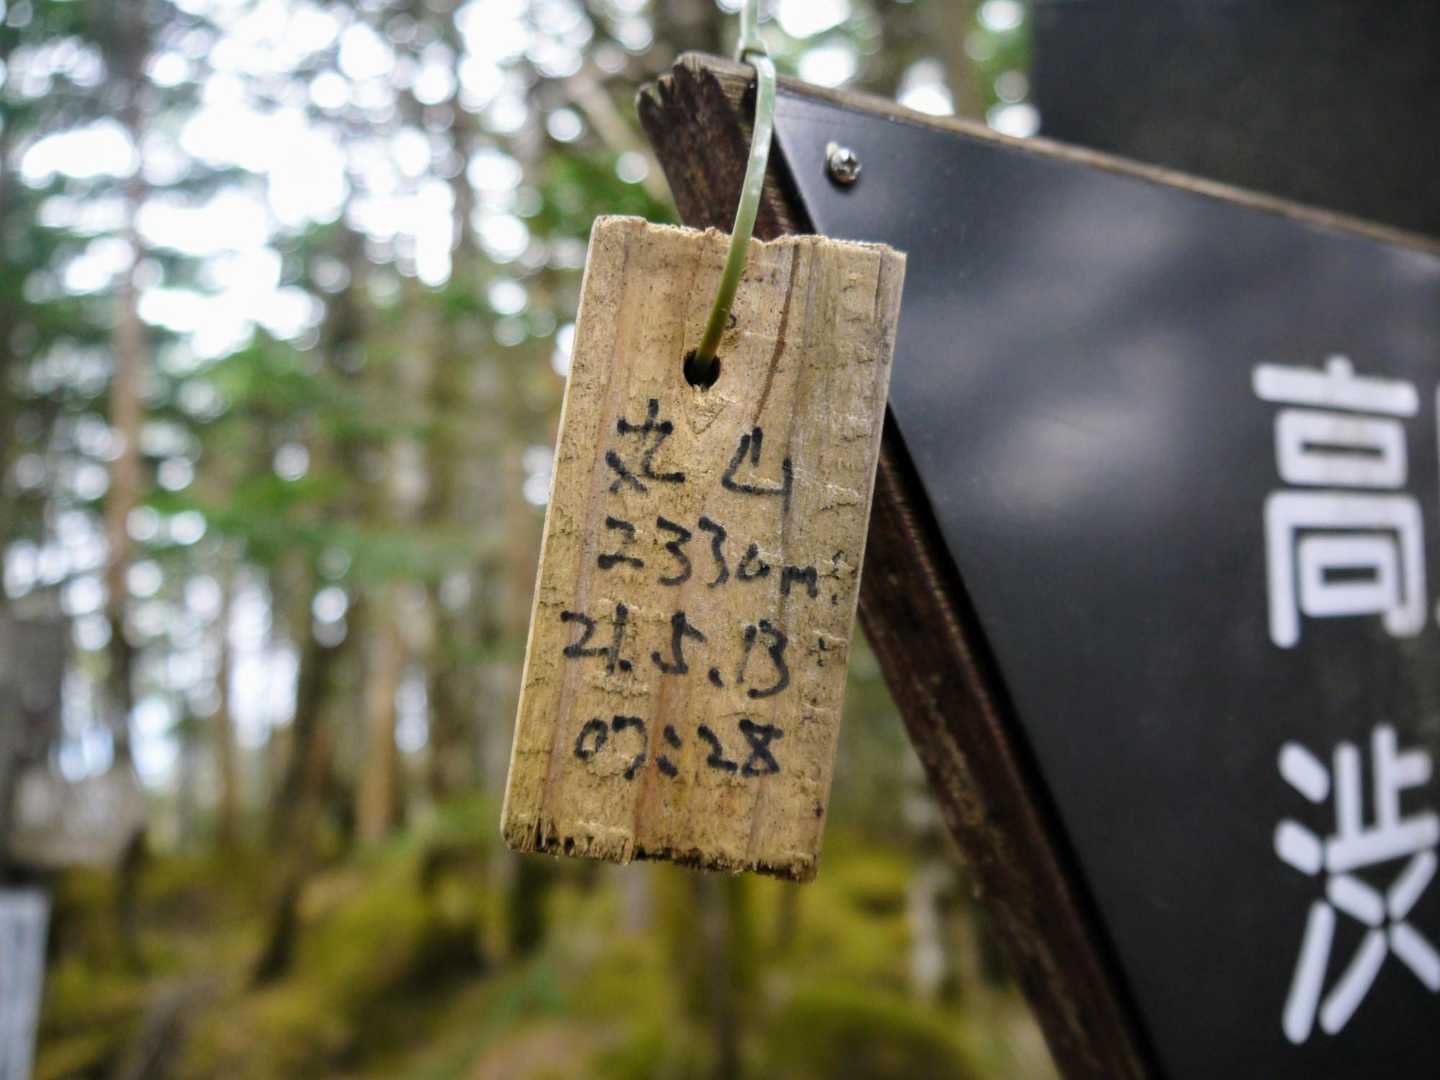 丸山
2330m
21.5.13
07:28
高
渋